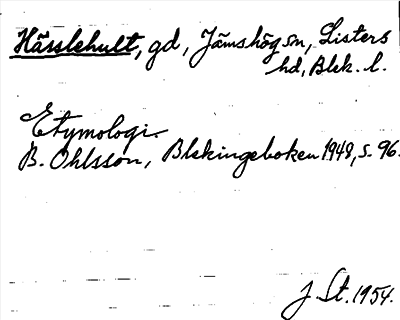 Hässlehult, gd, Jämshög sn, Listers
hd, Blek. l.
Etymologi
B. Ohlsson, Blekingeboken 1948, s. 96.
J St. 1954.